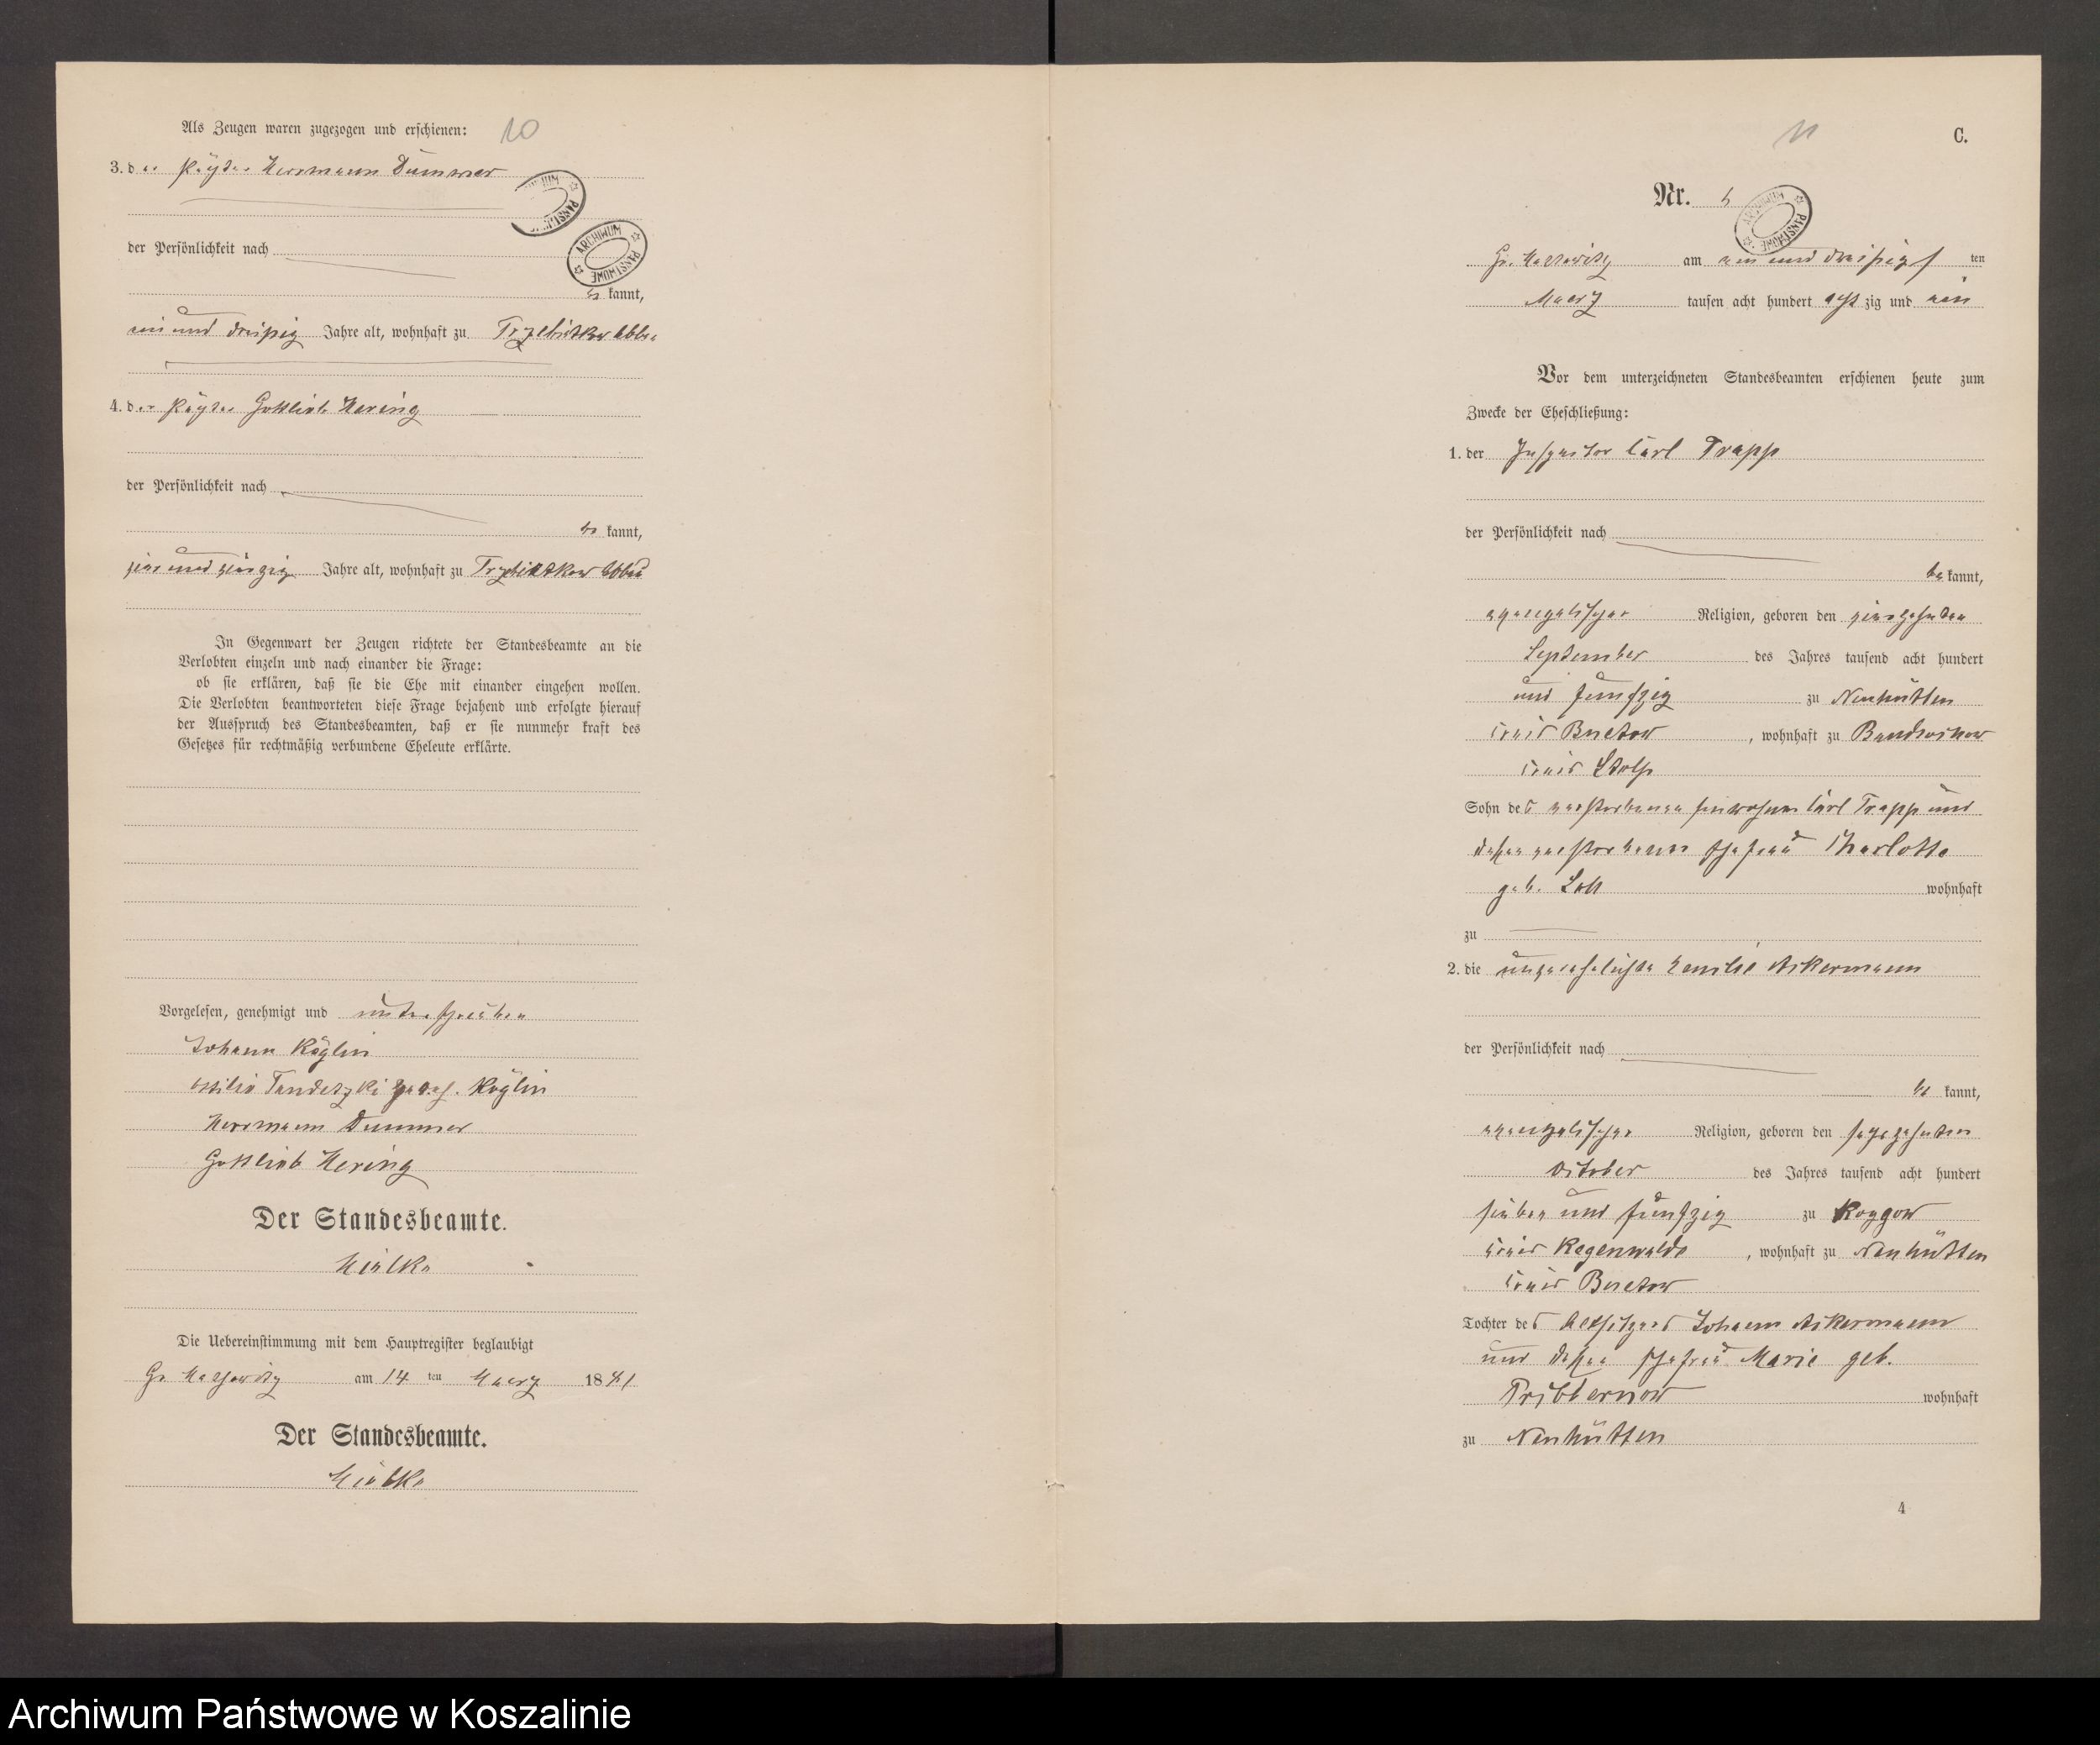 Als Zeugen waren zugezogen und erschienen:
10
3. der Herrmann Dummer
der Persönlichkeit nach
be kannt,
ein und dreißig Jahre alt, wohnhaft zu Trzebiatkow Abbau
4. der Gottlieb Hering
der Persönlichkeit nach
be kannt,
vier und vierzig Jahre alt, wohnhaft zu Trzebiatkow Abbau
In Gegenwart der Zeugen richtete der Standesbeamte an die
Verlobten einzeln und nach einander die Frage:
ob sie erklären, daß sie die Ehe mit einander eingehen wollen.
Die Verlobten beantworteten diese Frage bejahend und erfolgte hierauf
der Ausspruch des Standesbeamten, daß er sie nunmehr kraft des
Gesetzes für rechtmäßig verbundene Eheleute erklärte.
Vorgelesen, genehmigt und unterschrieben
Johann Röglin
Tandetzki Röglin
Herrmann Dummer
Gottlieb Hering
Der Standesbeamte.
Mielke
Die Uebereinstimmung mit dem Hauptregister beglaubigt
Gr. Massowitz am 14 ten Maerz 1881
Der Standesbeamte.
Mielke
ARCHIWUM PAŃSTWOWE
11
C.
Nr.
Gr. Massowitz am ein und dreißigsten ten
Maerz tausen acht hundert acht zig und ein
Vor dem unterzeichneten Standesbeamten erschienen heute zum
Zwecke der Eheschließung:
1. der Inspector Carl Trapp
der Persönlichkeit nach
be kannt,
evangelischer Religion, geboren den vierzehnten
September des Jahres tausend acht hundert
und fünfzig zu Neuhütten
Kreis Buetow, wohnhaft zu
Kreis Stolp
Sohn des verstorbenen Einwohner Carl Trapp und
dessen verstorbenen Ehefrau Charlotte
geb. wohnhaft
zu
2. die unverehelichte Emilie Ackermann
der Persönlichkeit nach
be kannt,
evangelischer Religion, geboren den sechszehnten
October des Jahres tausend acht hundert
sieben und fünfzig zu Roggow
Kreis Regenwalde, wohnhaft zu Neuhütten
Kreis Buetow
Tochter des Altsitzers Johann Ackermann
und dessen Ehefrau Marie geb.
Pribbernow wohnhaft
zu Neuhütten
4
Archiwum Państwowe w Koszalinie